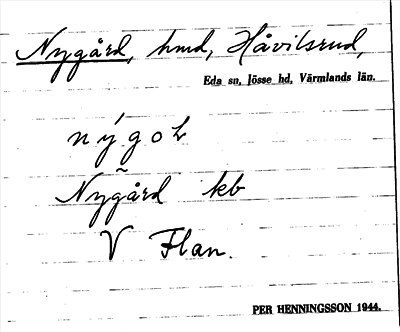 Nygård, hmd, Håvilsrud,
Eda sn, Jösse hd, Värmlands län.
nýgoL
Nygård kb
V Flan.
PER HENNINGSSON 1944.